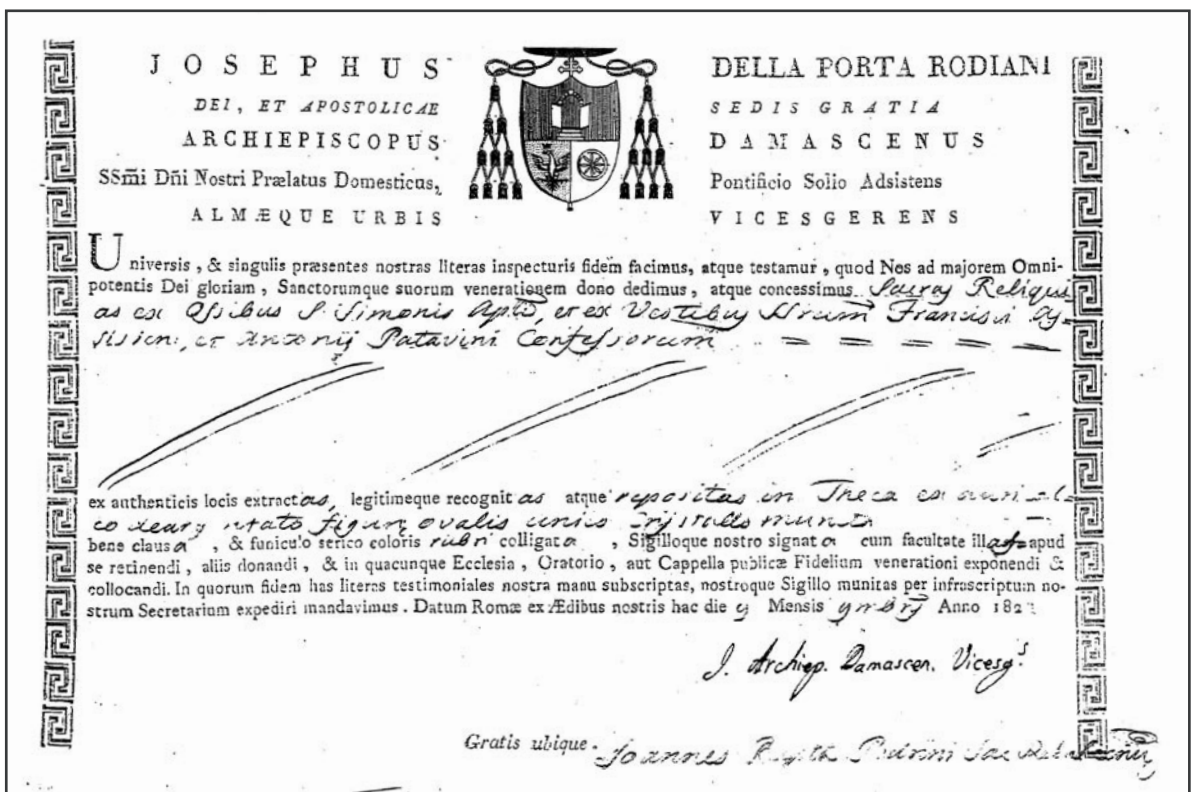 JOSEPHUS DELLA PORTA RODIANI
DEI, ET APOSTOLICAE SEDIS GRATIA
ARCHIEPISCOPUS DAMASCENUS
SSm̃i Dñi Nostri Prælatus Domesticus, Pontificio Solio Adsistens
ALMÆQUE URBIS VICESGERENS
Universis, & singulis præsentes nostras literas inspecturis fidem facimus, atque testamur, quod Nos ad majorem Omni-
potentis Dei gloriam, Sanctorumque suorum venerationem dono dedimus, atque concessimus Sacras Reliqui
as ex Ossibus S. Simonis Apli, et ex Vestibus SSrum Francisci As-
sisien: et Antonij Patavini Confessorum
ex authenticis locis extractas, legitimeque recognitas atque repositas in Theca ex
figuræ ovalis unico Crystallo munita
bene clausa, & funiculo serico coloris rubri colligata, Sigilloque nostro signata cum facultate illas apud
se retinendi, aliis donandi, & in quacunque Ecclesia, Oratorio, aut Cappella publicæ Fidelium venerationi exponendi &
collocandi. In quorum fidem has literas testimoniales nostra manu subscriptas, nostroque Sigillo munitas per infrascriptum no-
strum Secretarium expediri mandavimus. Datum Romæ ex Ædibus nostris hac die 9 Mensis 9mbrij Anno 182
J. Archiep. Damascen. Vicesg.s
Gratis ubique. Joannes